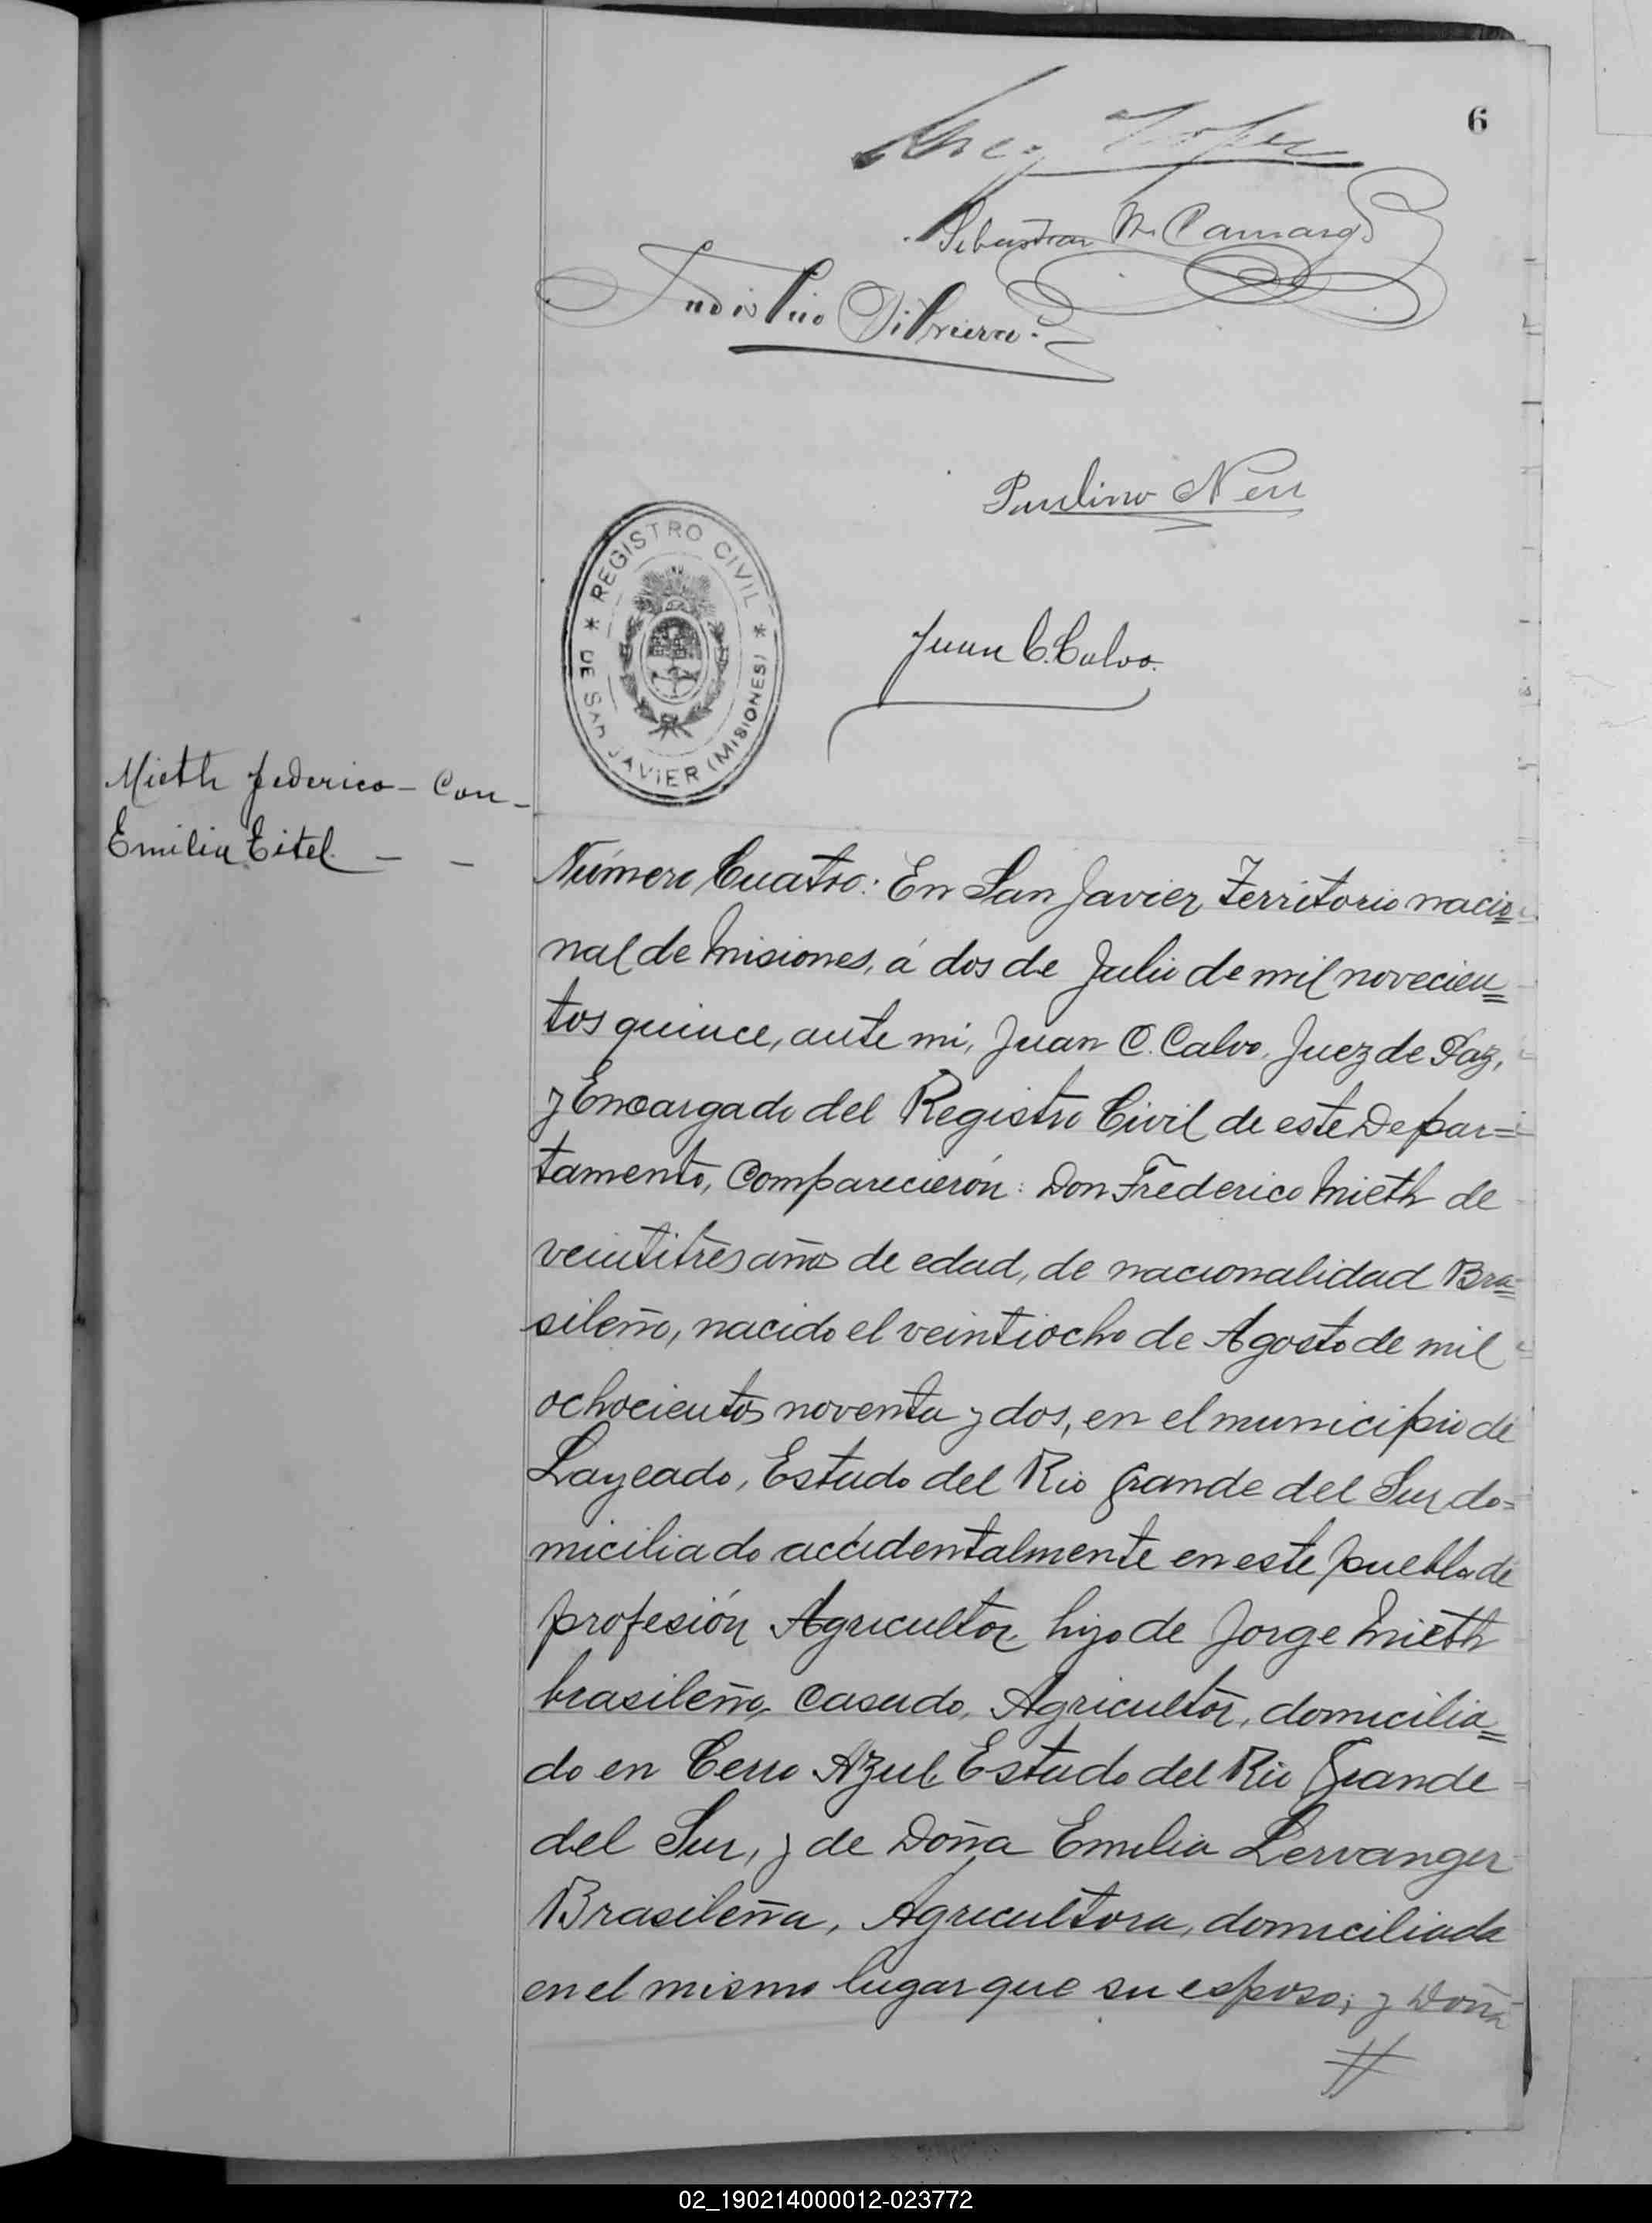 6
Sebastian M. Camargo
Paulino Neu
REGISTRO CIVIL
DE SAN JAVIER (MISIONES)
Juan C. Calvo.
Mieth Federico - Con -
Emilia Eitel. - -
Número Cuatro: En San Javier Territorio nacio=
nal de Misiones, á dos de Julio de mil novecien=
tos quince, ante mi, Juan C. Calvo, Juez de Paz,
y Encargado del Registro Civil de este Depar=
tamento, Comparecierón: Don Frederico Mieth de
veintitres años de edad, de nacionalidad Bra=
sileño, nacido el veintiocho de Agosto de mil
ochocientos noventa y dos, en el municipio de
Lageado, Estado del Rio Grande del Sur, do=
miciliado accidentalmente en este pueblo de
profesión Agricultor, hijo de Jorge Mieth
brasileño, casado, Agricultor, domicilia=
do en Cerro Azul, Estado del Rio Grande
del Sur, y de Doña Emilia Lervanger
Brasileña, Agricultora, domiciliada
en el mismo lugar que su esposo; y Doña
02_190214000012-023772